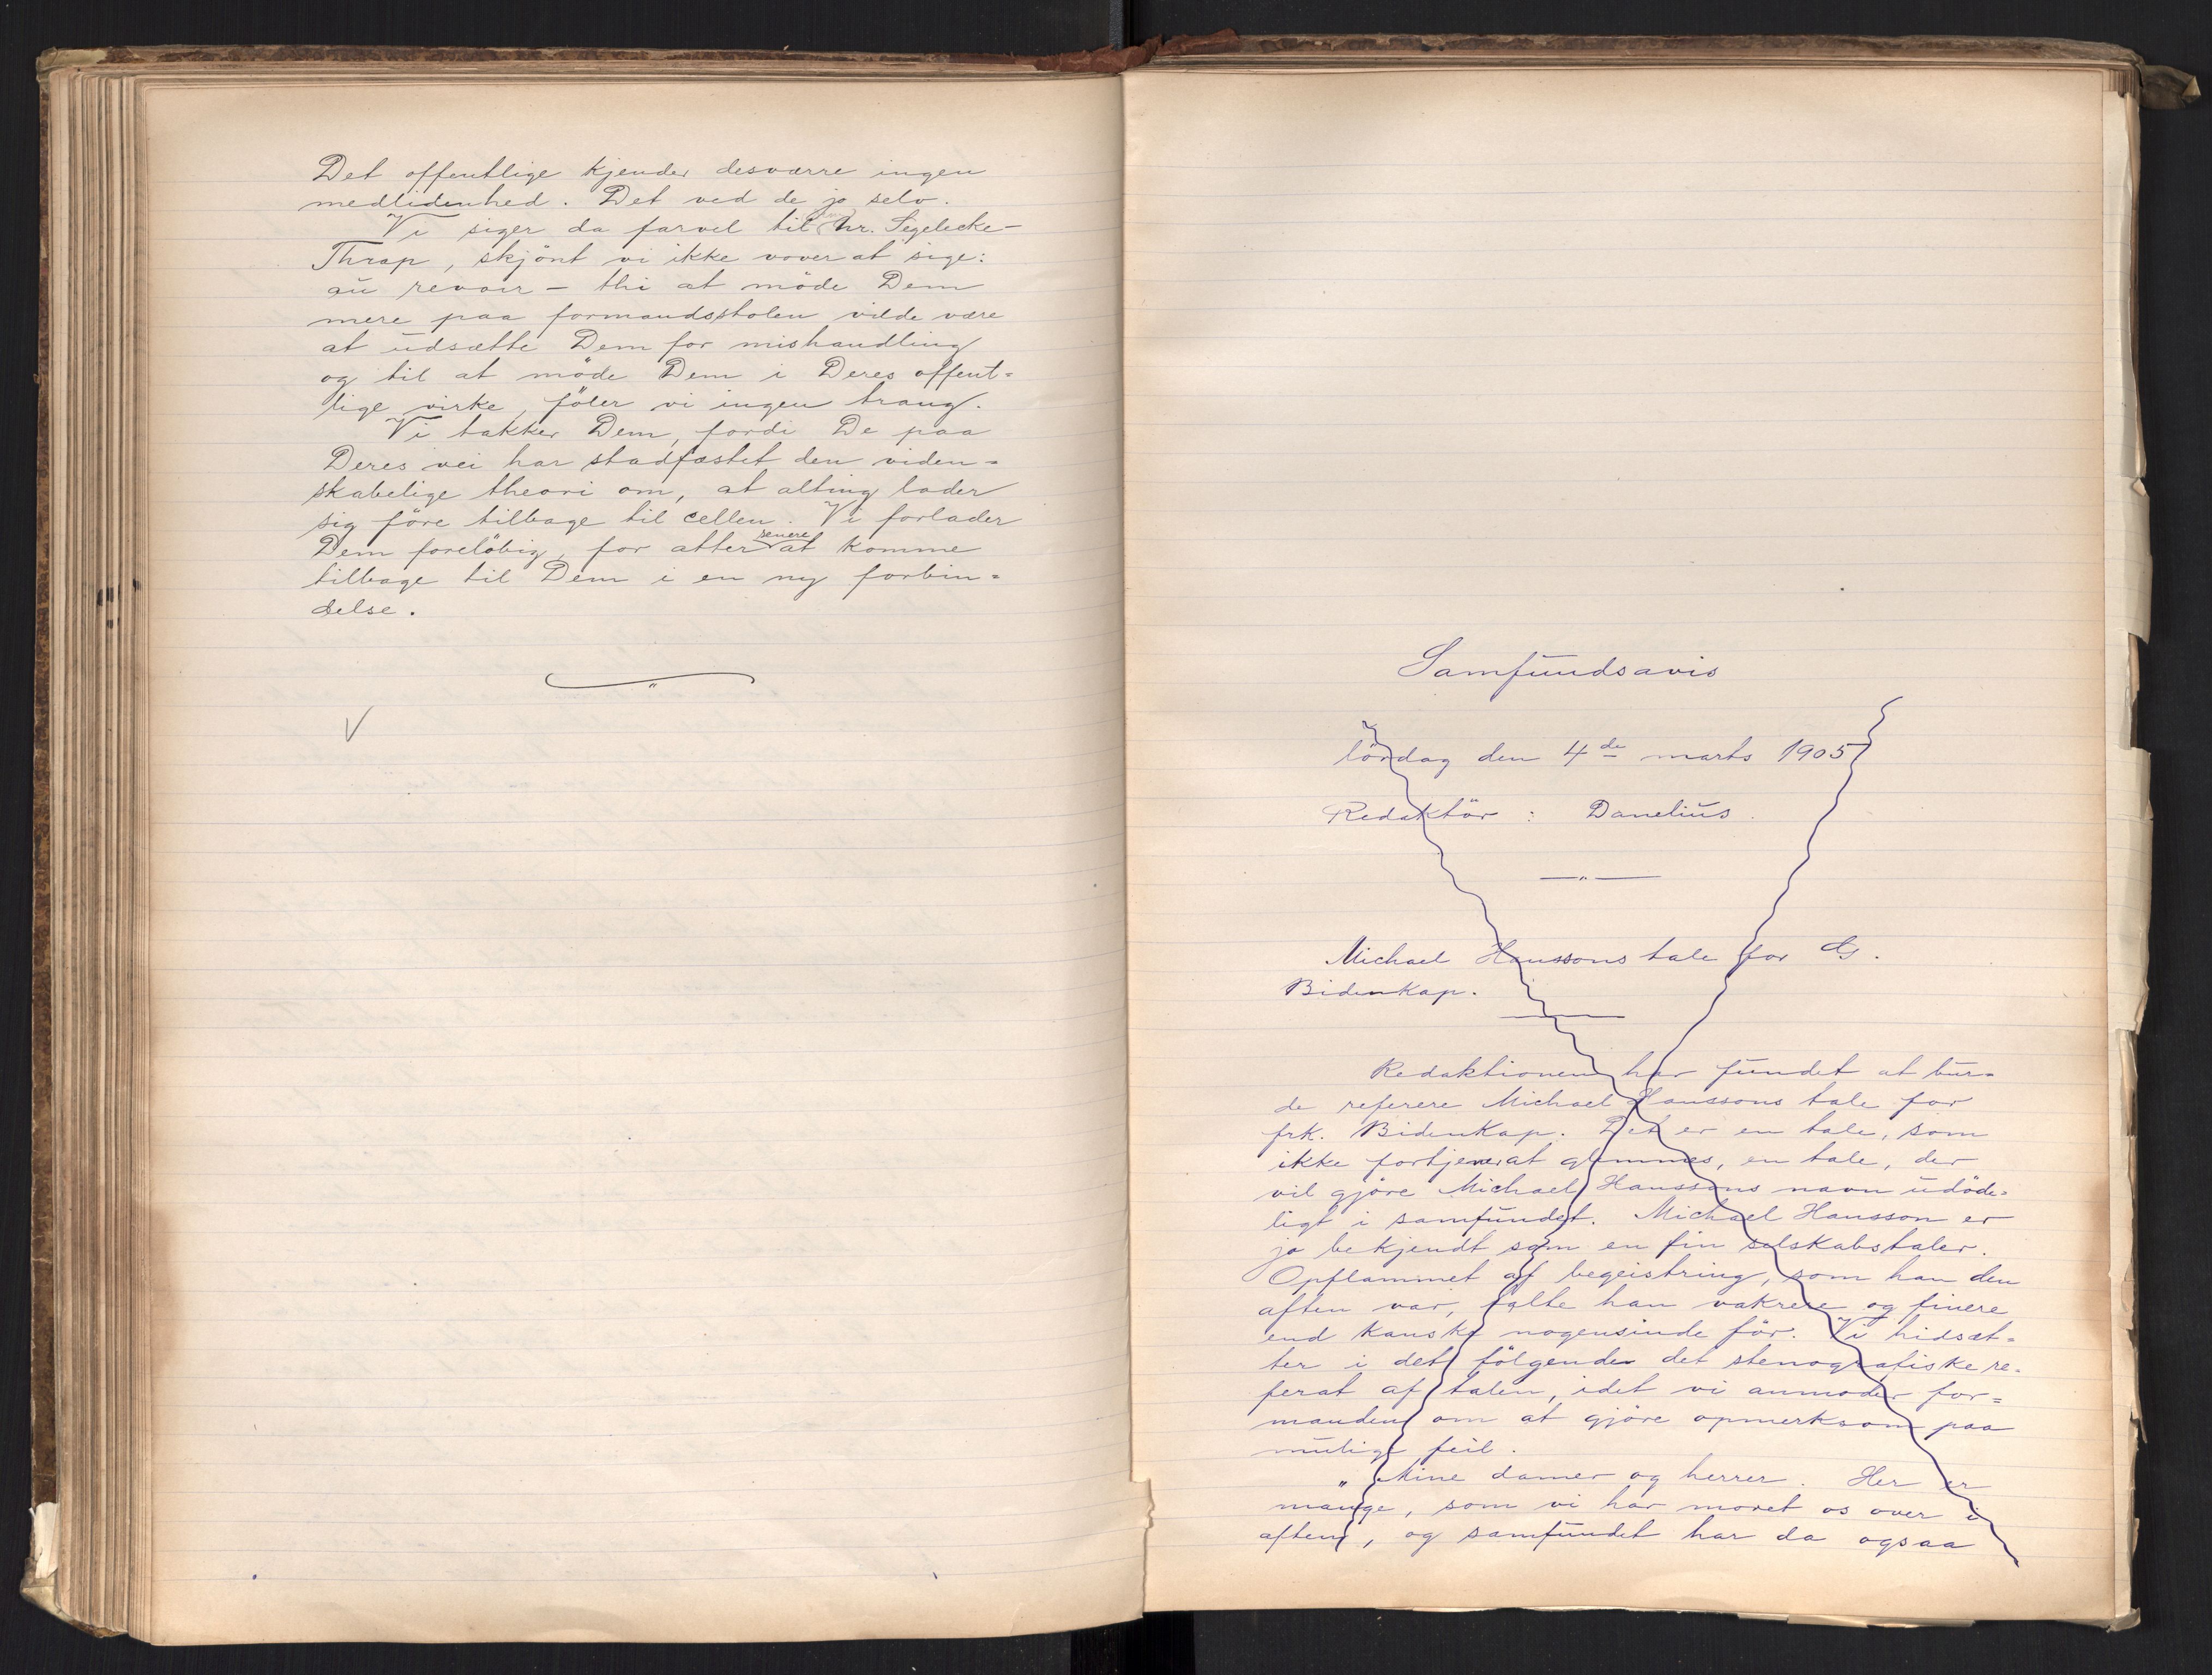 Det offentlige kjender desværre ingen
medlidenhed. Det ved de jo selv.
Vi siger da farvel til hr. Segelecke-
Thrap, skjönt vi ikke vover at sige:
au revoir – thi at möde Dem
mere paa formandsstolen vilde være
at udsætte Dem for mishandling
og til at möde Dem i Deres offent=
lige virke, föler vi ingen trang.
Vi takker Dem, fordi De paa
Deres vei har stadfæstet den viden=
skabelige theori om, at alting lader
sig före tilbage til cellen. Vi forlader
Dem foreløbig, for atter senere at komme
tilbage til Dem i en ny forbin=
delse.
V
Samfundsavis
lördag den 4de marts 1905
Redaktör: Danelius.
Michael Hanssons tale for
Bidenkap.
Redaktionen har fundet at bur=
de referere Michael Hanssons tale for
frk. Bidenkap. Det er en tale, som
ikke fortjener at glemmes, en tale, der
vil gjöre Michael Hanssons navn udöde=
ligt i samfundet. Michael Hansson er
jo bekjendt som en fin selskabstaler.
Opflammet af begeistring, som han den
aften var, talte han vakrere og finere
end kanske nogensinde för. Vi hidsæt=
ter i det fölgende det stenografiske re=
ferat af talen, idet vi anmoder for=
manden om at gjöre opmerksom paa
mulige feil.
„Mine damer og herrer. Her er
mange, som vi har moret os over i
aften, og samfundet har da ogsaa